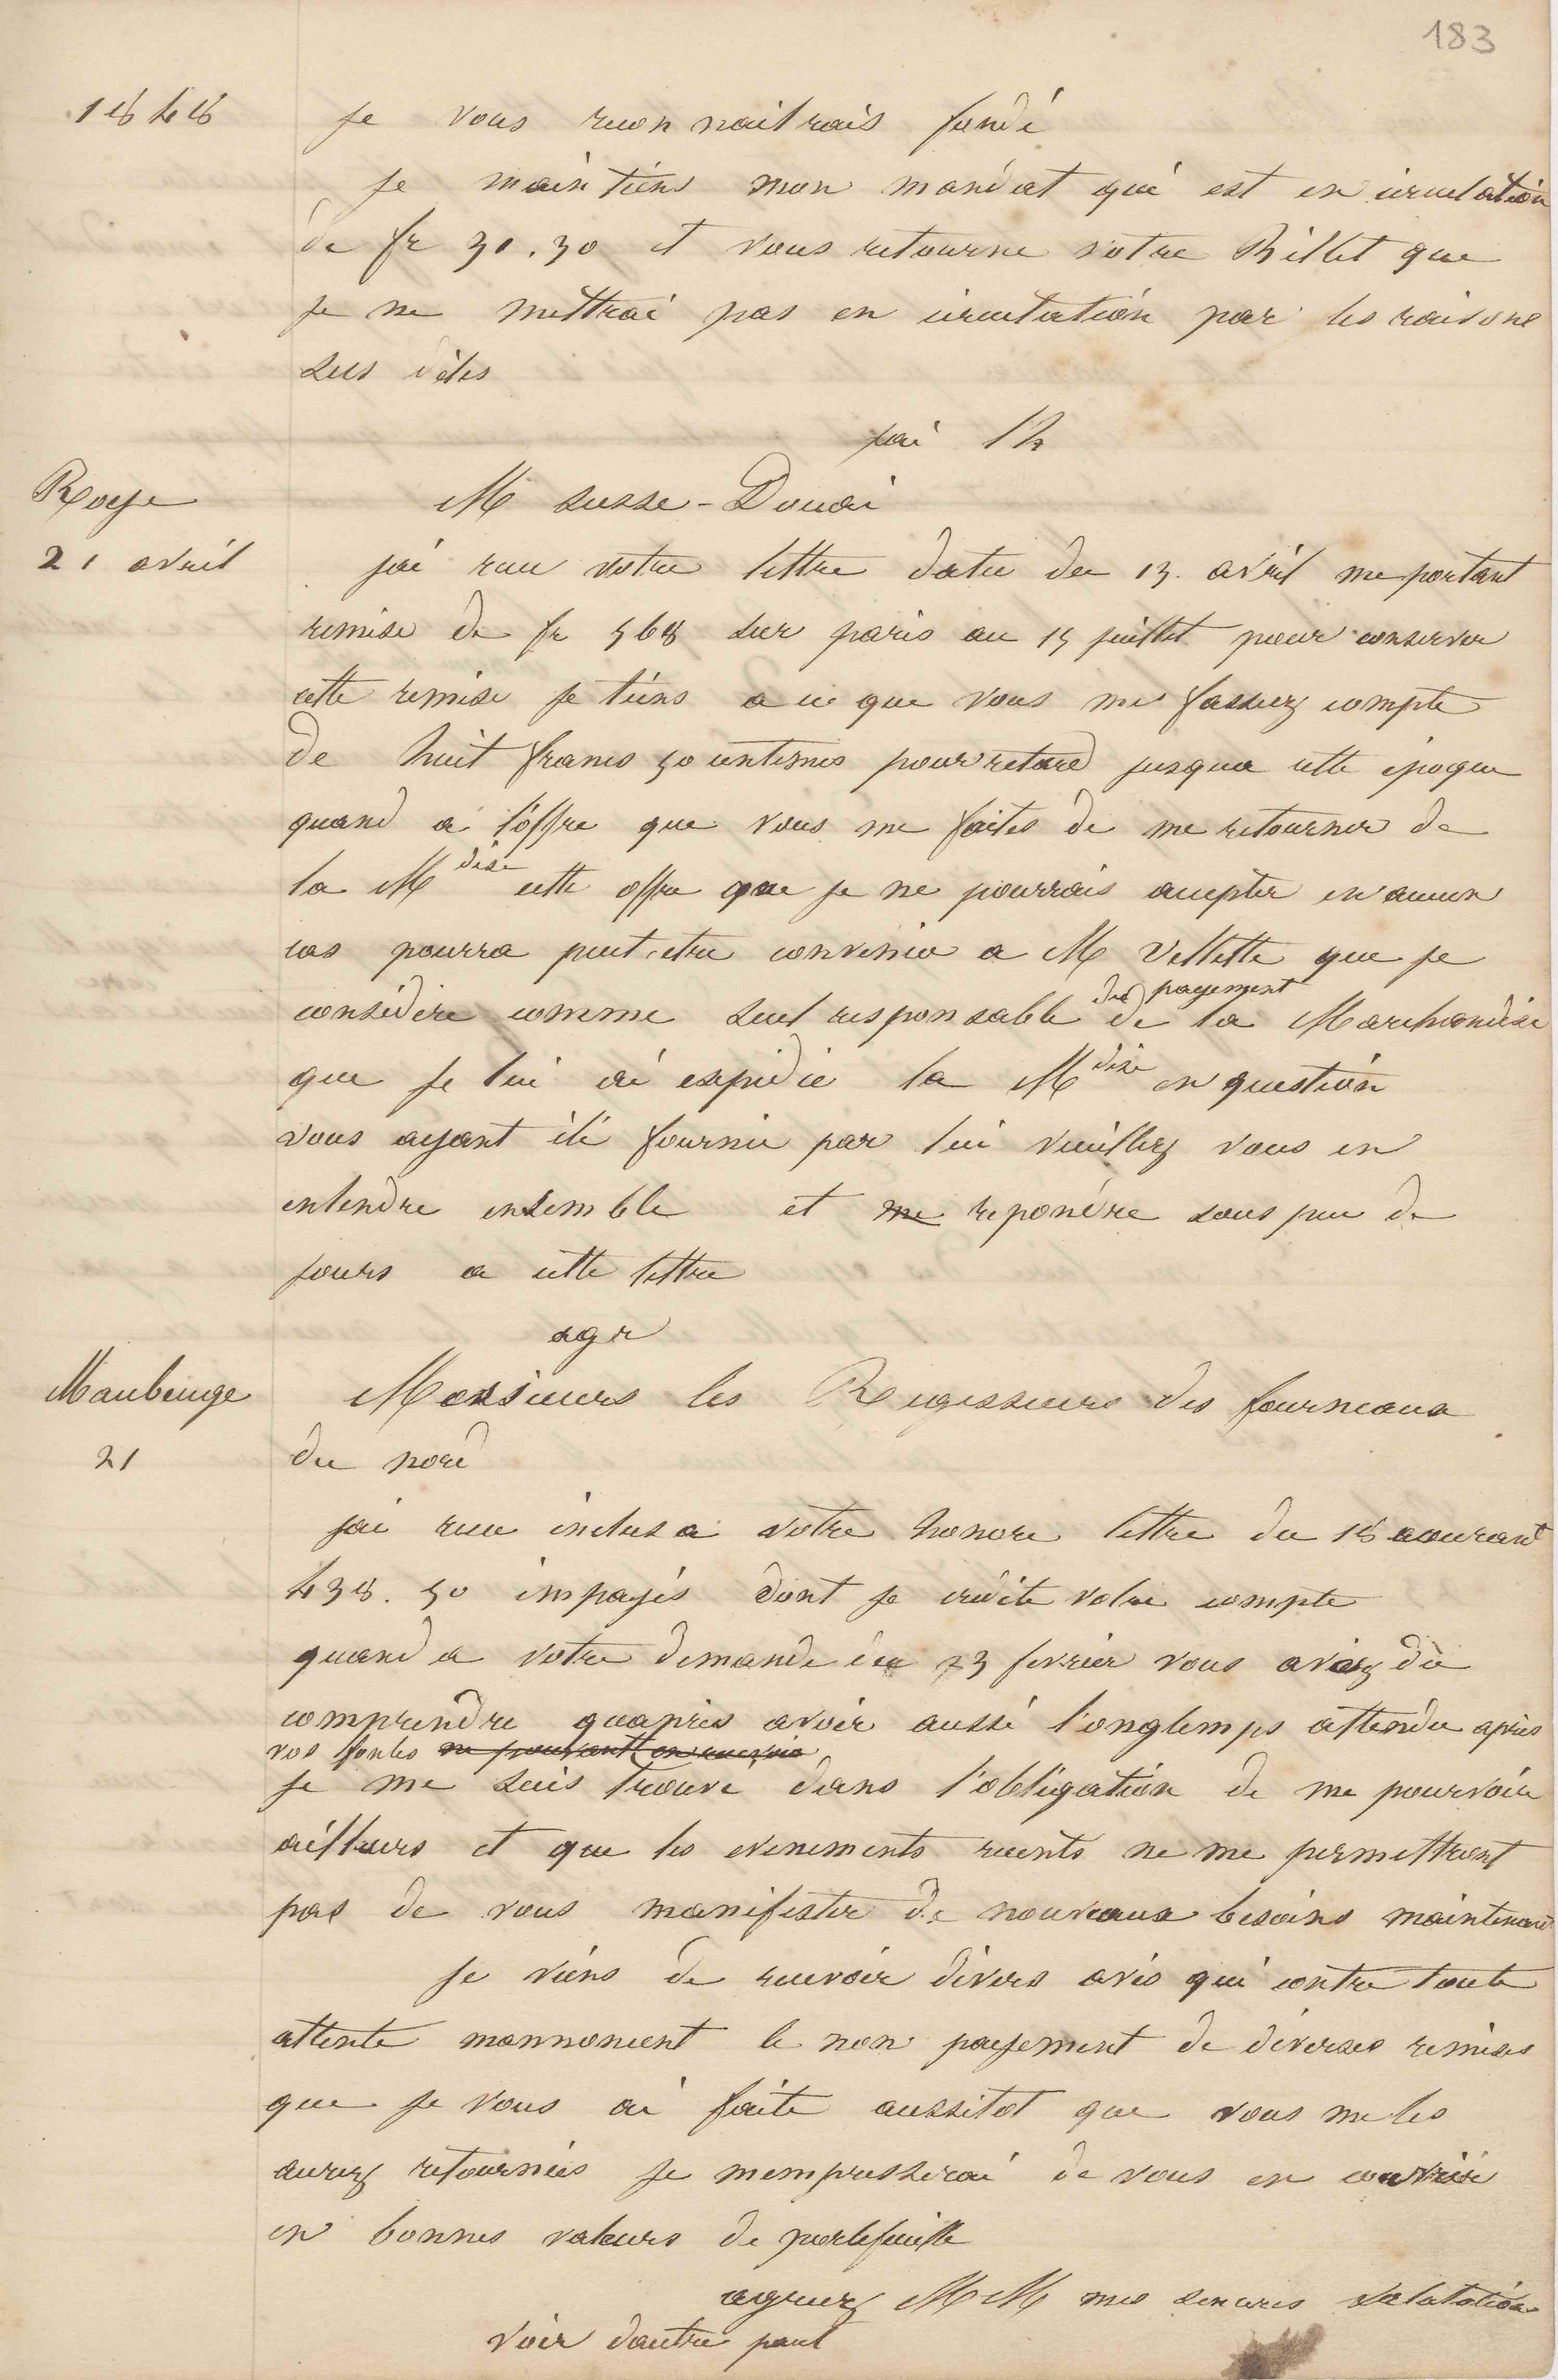 183
1848
je vous reconnaitrais fondé
je maintiens mon mandat qui est en circulation
de fr 30.30 et vous retourne votre Billet que
je ne mettrai pas en circulation par les raisons
sus dites
jai l'h
Roye
21 avril
M Susse-Douai
jai recu votre lettre datee du 13. avril me portant
remise de fr 568 sur paris au 15 juillet pour conserver
cette remise je tiens a ce que vous me fassiez compte
de huit francs 50 centimes pour retard jusqua cette époque
quand a l'offre que vous me faites de me retourner de
la Mdise cette offre que je ne pourrais accepter en aucun
cas pourra peut-etre convenir a M Vellette que je
considère comme seul responsable du payement de la Marchandise
que je lui ai expédié la Mdise en question
vous ayant été fournie par lui veuillez vous en
entendre ensemble et me repondre sous peu de
jours a cette lettre
agr
Maubeuge
21
Messieurs les Regisseurs des fourneaux
du nord
jai recu inclus a votre honore lettre du 18 courant
438.50 impayés dont je crédite votre compte
quand a votre demande du 23 fevrier vous aviez dû
comprendre quapres avoir aussi longtemps attendu apres
vos fontes ne pouvant en recevoir
je me suis trouvé dans l'obligation de me pourvoir
ailleurs et que les evenements recents ne me permettront
pas de vous manifester de nouveaux besoins maintenant
je viens de recevoir divers avis qui contre toute
attente mannoncent le non payement de diverses remises
que je vous ai faite aussitot que vous me les
aurez retournées je mempresserai de vous en couvrir
en bonnes valeurs de portefeuille
agreez MM mes sinceres salutations
voir dautre part